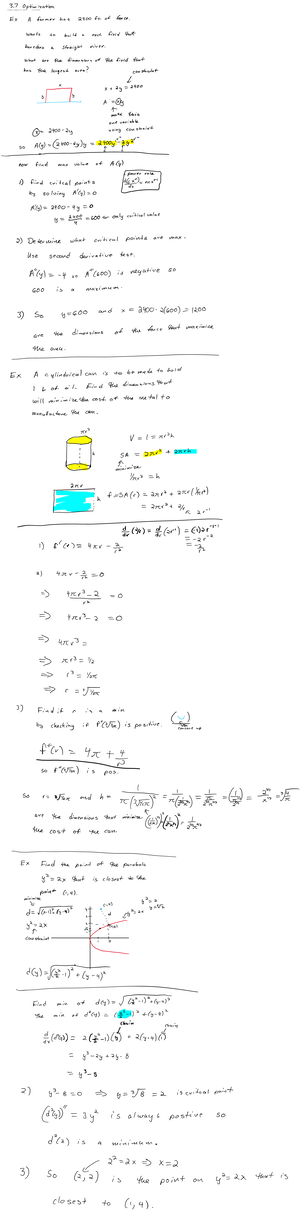 3.7 Optimization
Ex A farmer has 2400 ft of fence.
wants to build a rect. field that
borders a straight river.
what are the dimensions of the field that
has the largest area?
constraint
x + 2y = 2400
y
x
y
A = xy
make this
one variable
using constraint
x = 2400 - 2y
so A(y) = (2400 - 2y)y = 2400y - 2y²
now find max value of A(y)
1) find critical points
by solving A'(y) = 0
power rule
A'(y) = 2400 - 4y = 0
y = 2400/4 = 600 only critical value
2) Determine what critical points are max.
Use second derivative test.
A''(y) = -4 so A''(600) is negative so
600 is a maximum.
3) So y = 600 and x = 2400 - 2(600) = 1200
are the dimensions of the fence that maximize
the area.
Ex A cylindrical can is to be made to hold
1 L of oil. Find the dimensions that
will minimize the cost of the metal to
manufacture the can.
πr²
h
V = 1 = πr²h
SA = 2πr² + 2πrh
minimize
1/πr² = h
2πr
h
f = SA(r) = 2πr² + 2πr(1/πr²)
= 2πr² + 2/r
2r⁻¹
d/dr (2/r) = d/dr (2r⁻¹) = (-1)2r⁻¹⁻¹
= -2r⁻²
= -2/r²
1) f'(r) = 4πr - 2/r²
4πr - 2/r² = 0
⇒ 4πr³ - 2 / r² = 0
⇒ 4πr³ - 2 = 0
⇒ 4πr³ =
⇒ πr³ = 1/2
⇒ r³ = 1/2π
⇒ r = ∛1/2π
3) Find if r is a min
by checking if f''(∛1/2π) is positive.
concave up
f''(r) = 4π + 4/r³
so f''(∛1/2π) is pos.
so r = ∛1/2π and h =
are the dimensions that minimize
the cost of the can.
Ex Find the point of the parabola
y² = 2x that is closest to the
point (1,4).
minimize
d = √(x-1)² + (y-4)²
y² = 2x
constraint
(1,4)
d
y² = 2x
d(y) = √(y²/2 - 1)² + (y-4)²
Find min of d(y) = √(y²/2 - 1)² + (y-4)²
The min of d²(y) = (y²/2 - 1)² + (y-4)²
chain
chain
d/dy (d²(y)) = 2(y²/2 - 1)(y) + 2(y-4)(1)
= y³ - 2y + 2y - 8
= y³ - 8
2) y³ - 8 = 0 ⇒ y = ∛8 = 2 is critical point
(d²(y))'' = 3y² is always postive so
d²(2) is a minimum.
2² = 2x ⇒ x = 2
3) So (2,2) is the point on y² = 2x that is
closest to (1,4).